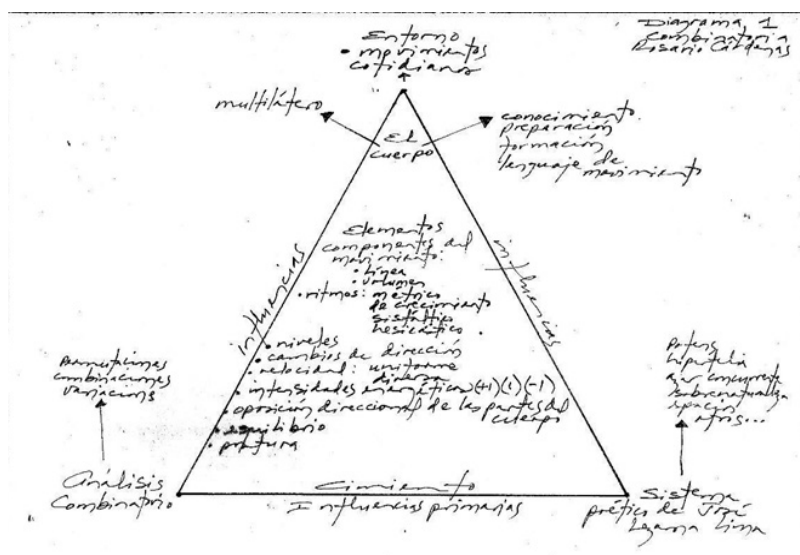 Diagrama 1
Combinatoria
Rosario Cárdenas
Entorno
• movimientos
cotidianos
multilátero
El
cuerpo
conocimiento
preparación
formación
lenguaje de
movimiento
influencias
influencias
Elementos
componentes del
movimiento:
• línea
• volumen
• ritmos: métrico
de crecimiento
sistáltico
hesicástico
• niveles
• cambios de dirección
• velocidad: uniforme
diversa
• intensidades (+1) (1) (-1)
• oposición direccional de las partes del
cuerpo
• equilibrio
• postura
Permutaciones
combinaciones
variaciones
Análisis
Combinatorio
Cimiento
Influencias primarias
Potens
hipertelia
azar concurrente
sobrenaturaleza
espacios
Sistema
poético de José
Lezama Lima